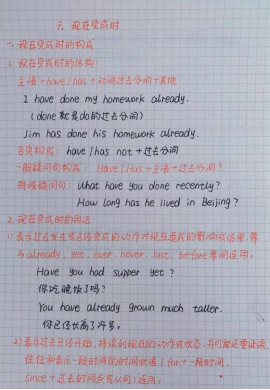 7. 现在完成时
一. 现在完成时的构成
1. 现在完成时的结构:
主语 + have / has + 动词过去分词 + 其他
I have done my homework already.
(done 就是do的过去分词)
Jim has done his homework already.
否定构成: have / has not + 过去分词
一般疑问句构成: Have / Has + 主语 + 过去分词?
特殊疑问句: What have you done recently?
How long has he lived in Beijing?
2. 现在完成时的用法:
1) 表示过去发生或已经完成的动作对现在造成的影响或结果, 常
与 already, yet, ever, never, just, before 等连用。
Have you had supper yet?
你吃晚饭了吗?
You have already grown much taller.
你已经长高了许多。
2) 表示过去已经开始, 持续到现在的动作或状态, 并可能还要延续,
往往和表示一段时间的时间状语 (for + 一段时间,
since + 过去时间点或从句) 连用。